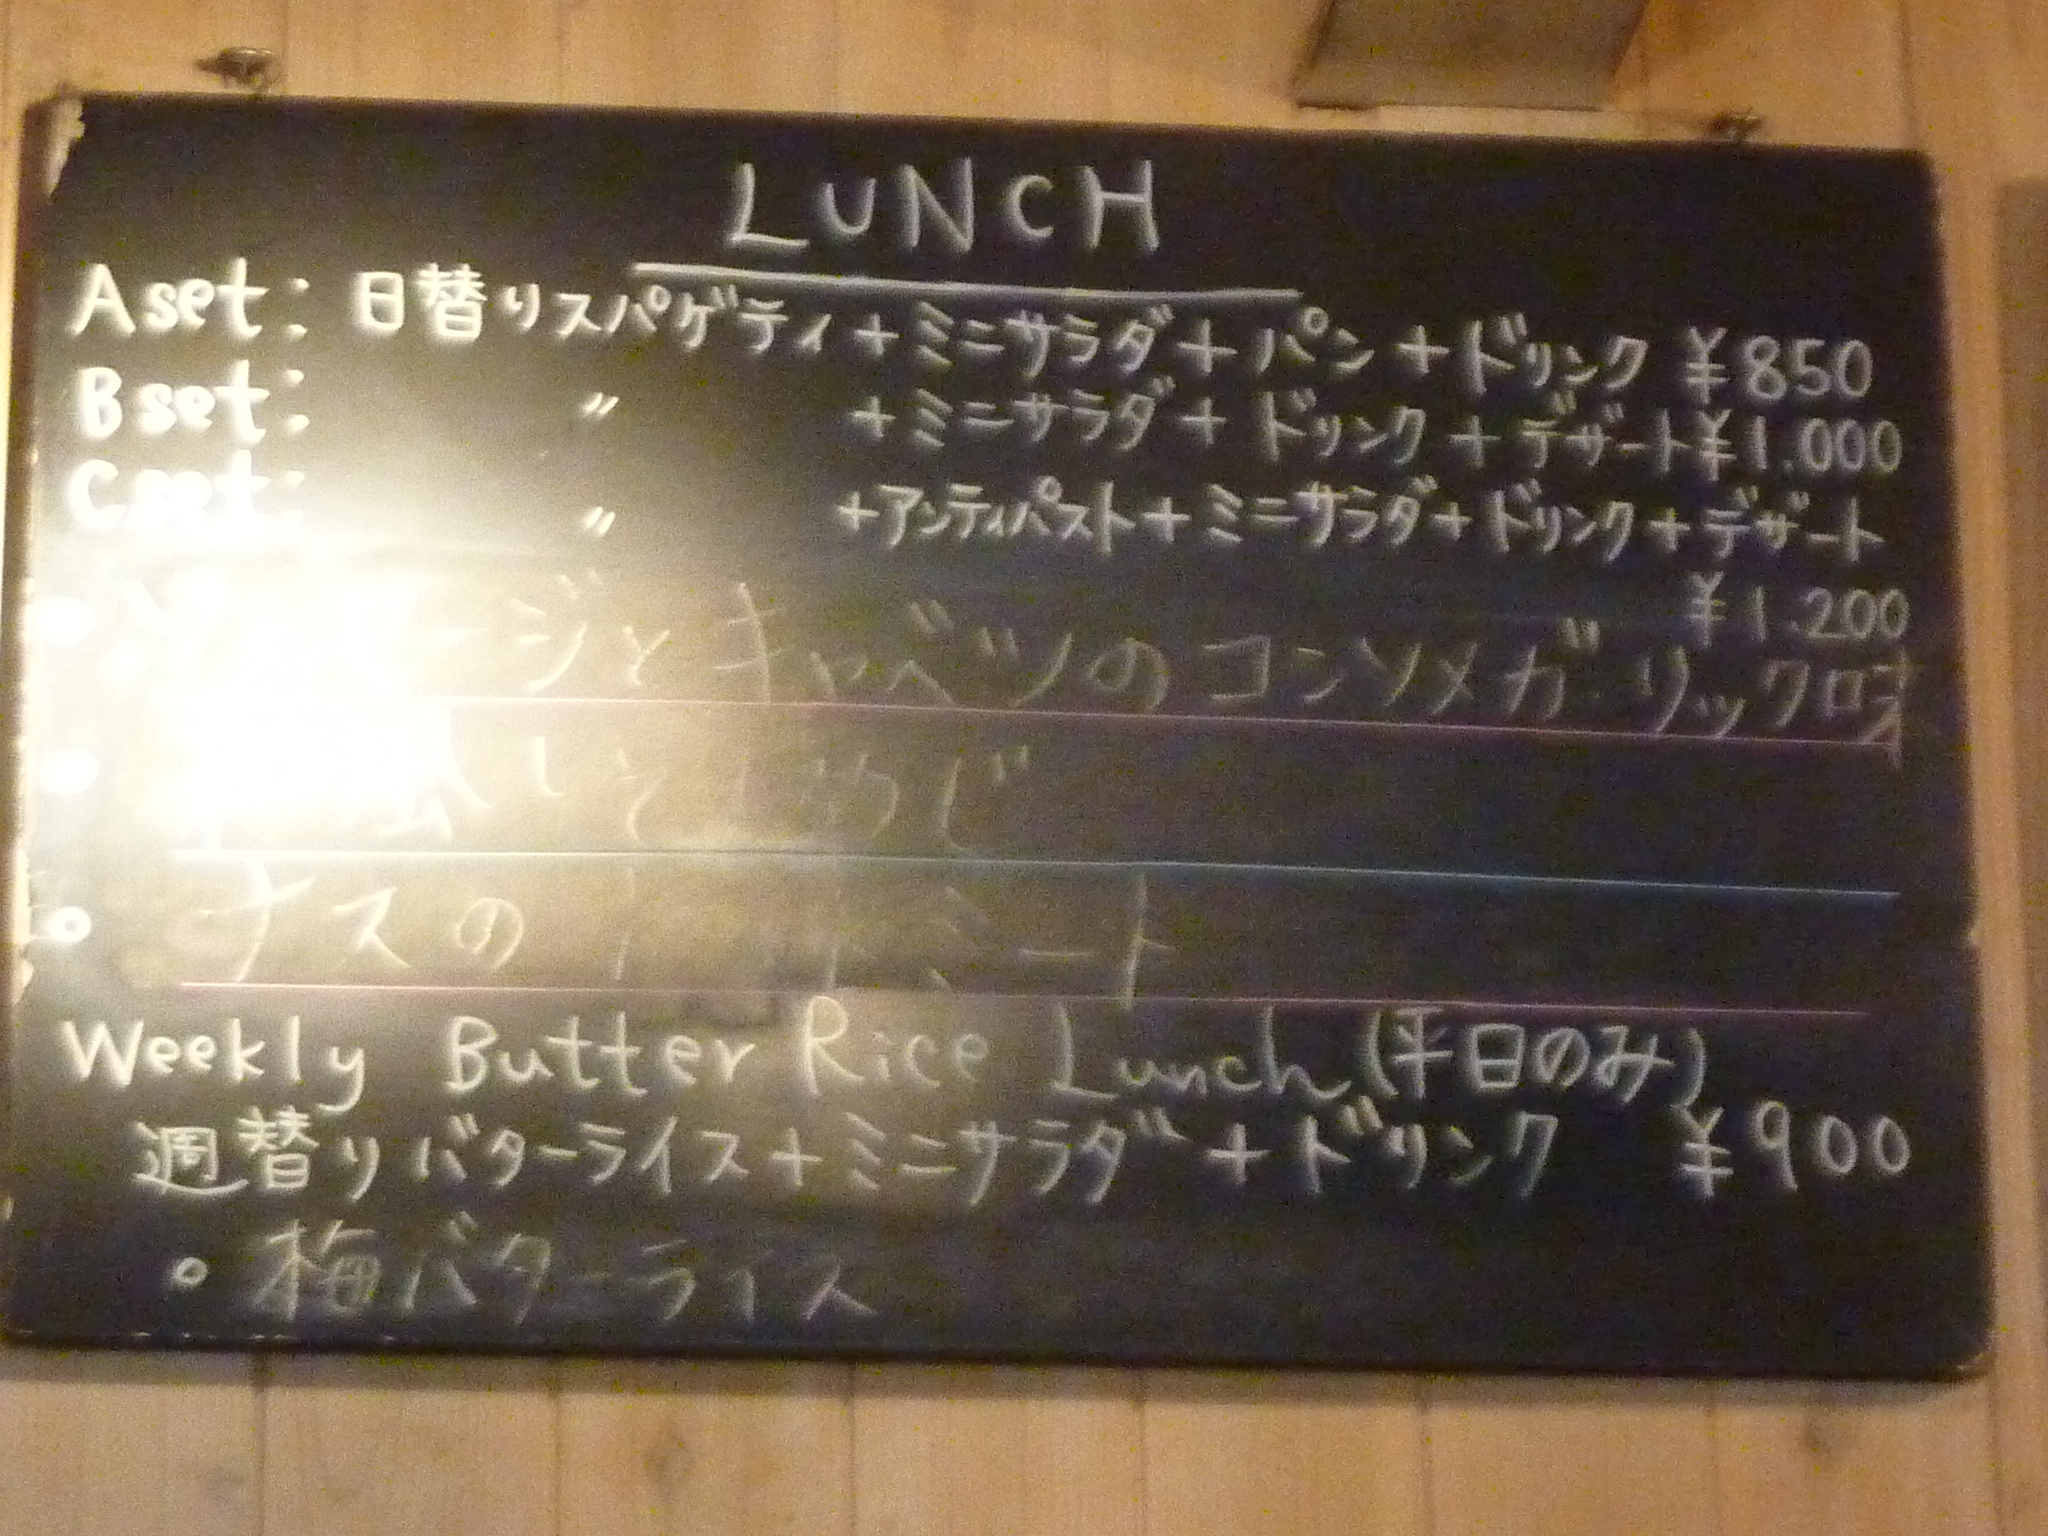 LUNCH
Aset: 日替りスパゲティ+ミニサラダ+パン+ドリンク ¥850
Bset: 〃 +ミニサラダ+ドリンク+デザート¥1.000
Cset: 〃 +アンティパスト+ミニサラダ+ドリンク+デザート
¥1.200
ソーセージとキャベツのコンソメガーリック味
風 しそ しめじ
ナスの
Weekly Butter Rice Lunch (平日のみ)
週替りバターライス+ミニサラダ+ドリンク ¥900
○ 梅バターライス